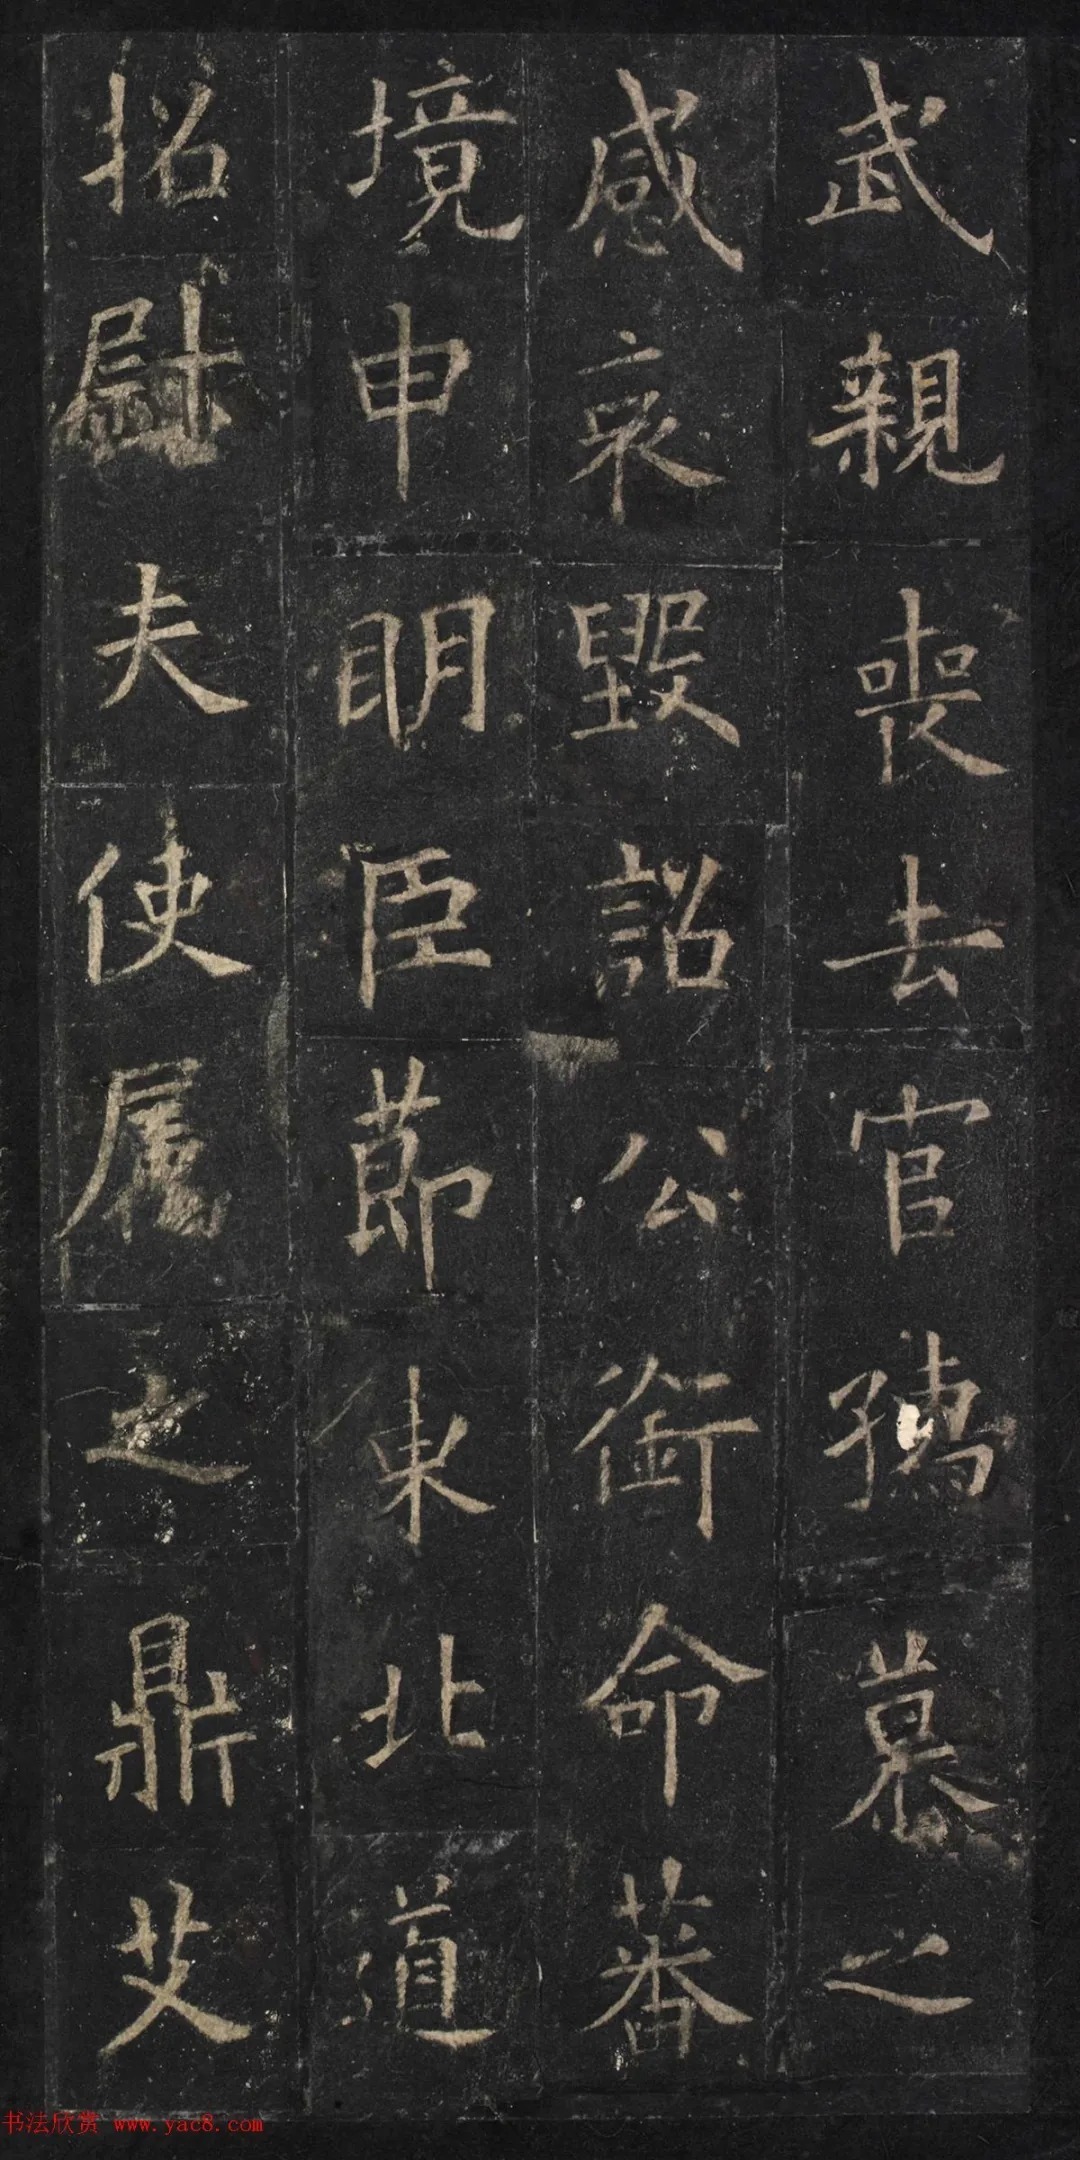 武親喪去官孺慕之
感哀毀詔公銜命蕃
境申眀臣節東北道
招慰夫使屬之鼎艾
书法欣赏 www.yac8.com